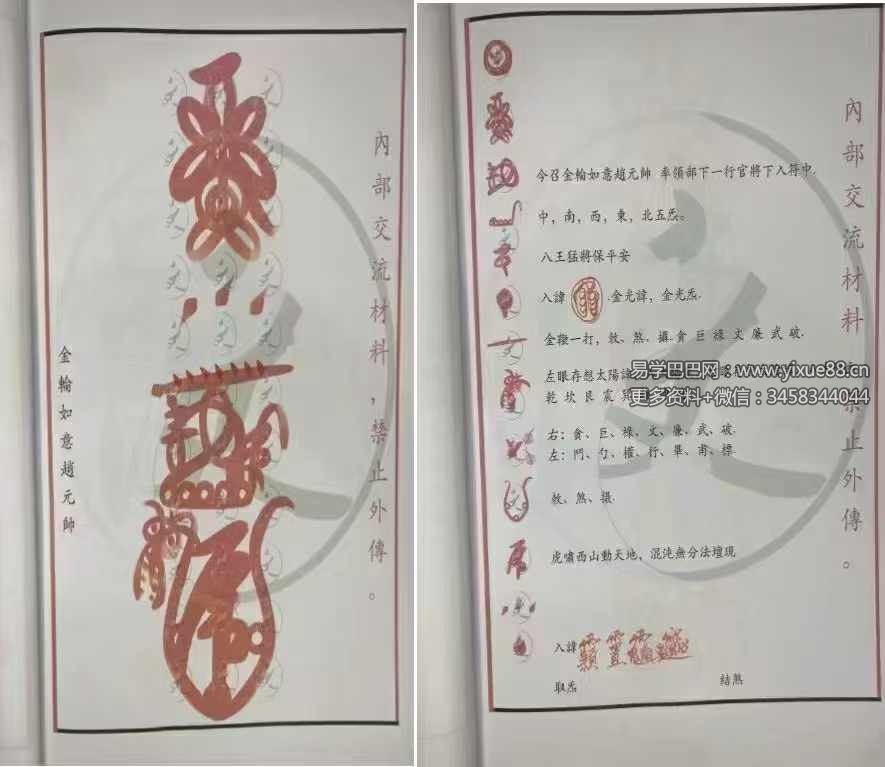 金輪如意趙元帥
內部交流材料，禁止外傳。
今召金輪如意趙元帥 率領部下一行官將下入符中.
中，南，西，東，北五炁。
八王猛將保平安
入諱 .金光諱，金光炁.
金鞭一打，敕、煞、攝.貪 巨 祿 文 廉 武 破.
左眼存想太陽諱
乾 坎 艮 震 巽
右：貪、巨、祿、文、廉、武、破.
左：鬥、勺、權、行、畢、甫、標.
敕、煞、摄.
虎嘯西山動天地，混沌無分法壇現
入諱
取炁 結煞
內部交流材料 禁止外傳。
易学巴巴网：www.yixue88.cn
更多资料+微信：3458344044